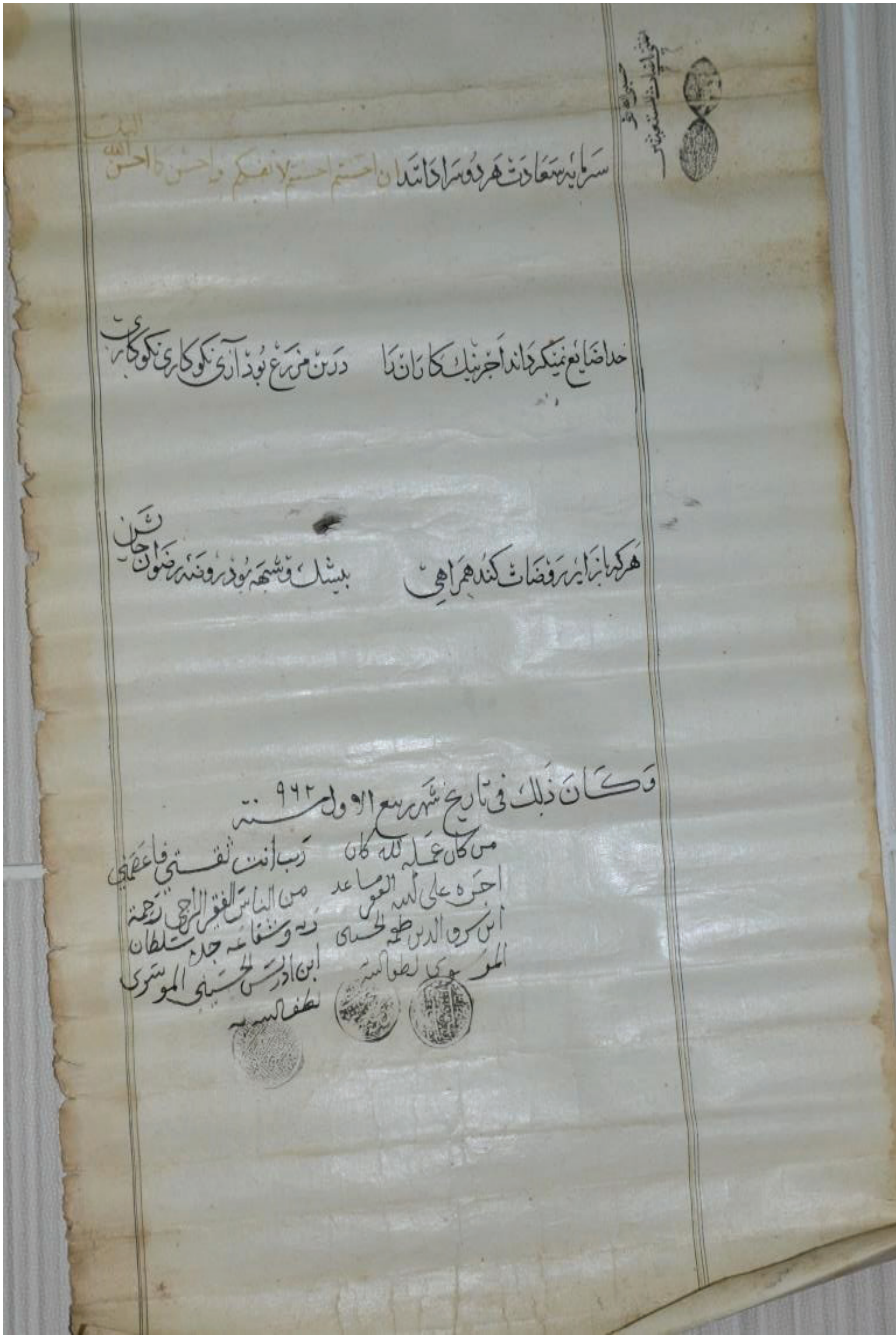 سرمایه سعادت هر دو سرا دانند ان احسنتم احسنتم لانفسکم و احسن کما احسن الله الیک
خدا ضایع نمیگرداند اجر نیک کاران را درین مزرع بود آری نکوکاری نکوکاری
هر که با زایر روضات کند همراهی بیشک و شبهه بود روضه رضوان جایش
وَكَانَ ذلك فی تاریخ شهر ربیع الاول سنة ۹۶۲
من كان عمله لله كان
اجره على الله الفقير مساعد
ابن الدين الحسينى
الموسوى لطف الله به
رب انت ثقتي فاعصمني
من الناس الفقير الراجى رحمة
ربه وشفاعة جده سلطان
ابن ادريس الحسينى الموسوى
لطف الله به